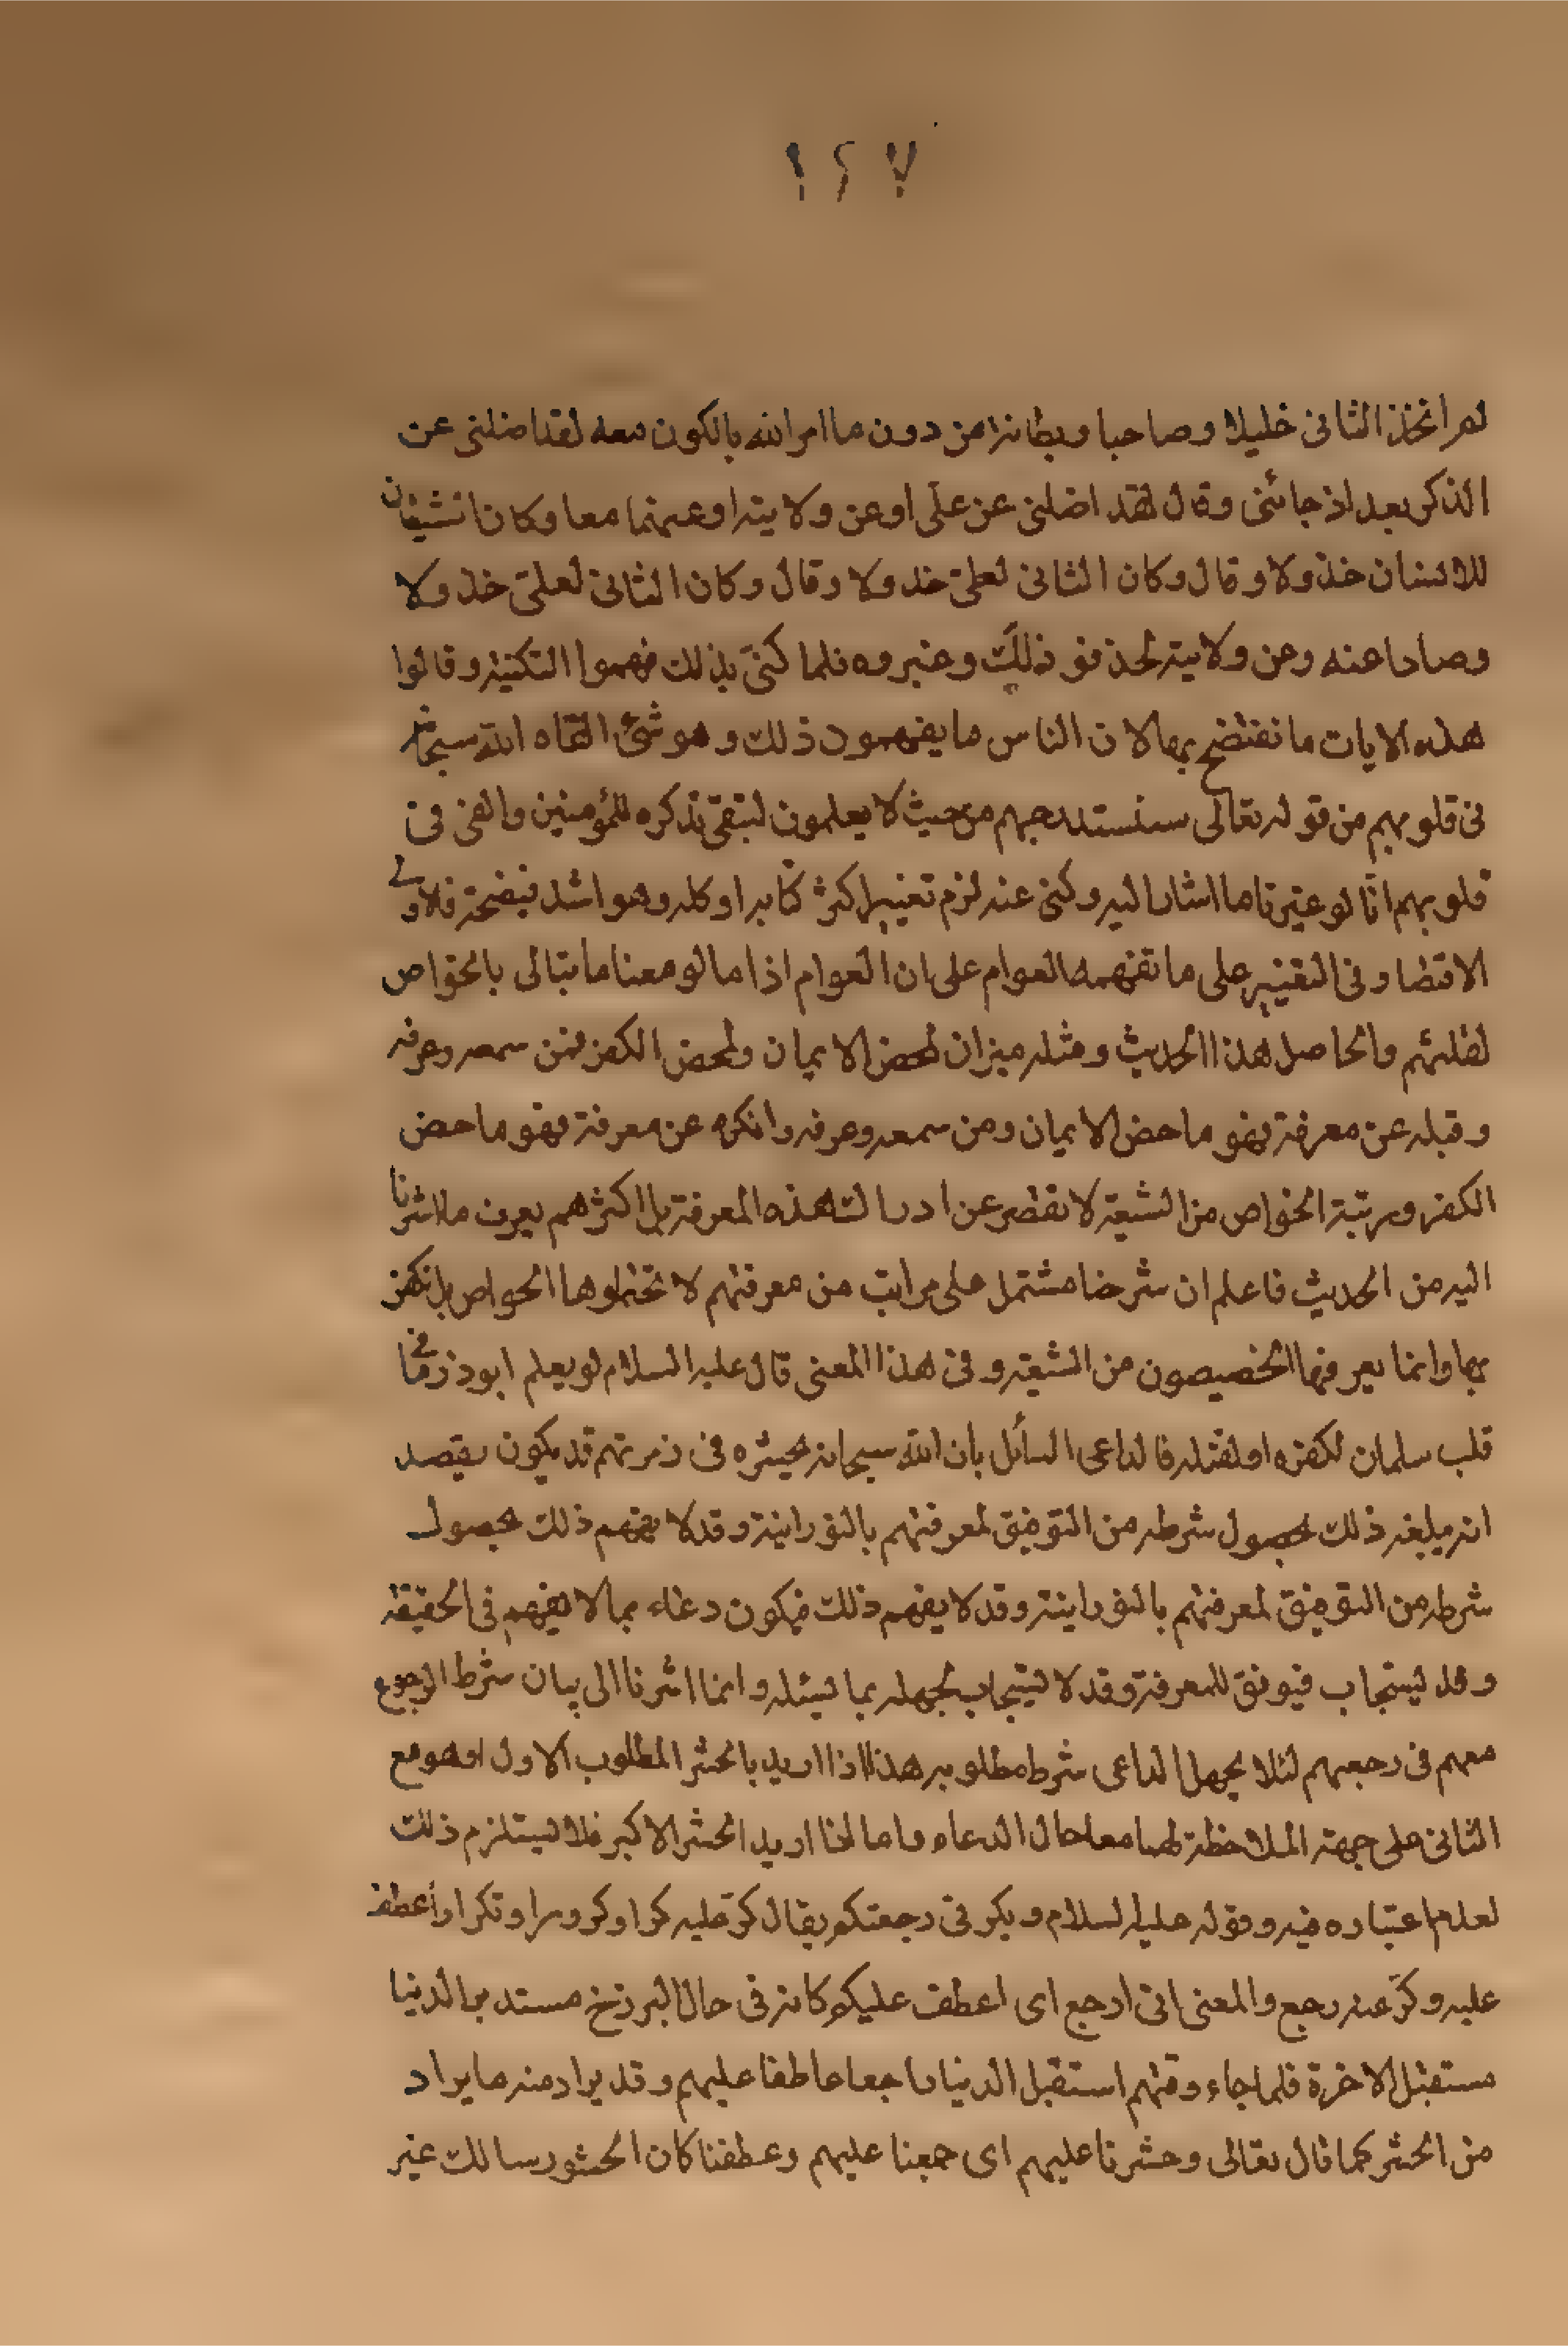 ١٢٧
لم اتخذ الثانى خليلا وصاحبا وبطانة من دون ما امر الله بالكون معه لقد اضلنى عن
الذكر بعد اذ جائنى وقال لقد اضلنى عن على او عن ولايته او عنهما معا وكان الشيطان
للانسان خذولا وقال وكان الثانى لعلىّ خذولا وقال وكان الثانى لعلىّ خذولا
وصادا عنه وعن ولايته لحذفو ذلك وغيروه فلما كنىّ بذلك فهموا التكنية وقالوا
هذه الايات ما نفتضح بها لان الناس ما يفهمون ذلك وهو شئ القاه الله سبحانه
فى قلوبهم من قوله تعالى سنستدرجهم من حيث لا يعلمون لتبقى تذكره للمؤمنين والقى فى
قلوبهم انّا لو غيّرنا ما اشار اليه وكنى عنه لزم تغيير اكثر كتابه او كله وهو اشد فيضحة فلاولى
الاقتصار فى التغيير على ما تفهمه العوام على ان العوام اذا مالو معنا ما نبالى بالخواص
لقلتهم والحاصل هذا الحديث ومثله ميزان لمحض الايمان ولمحض الكفر فمن سمعه وعرفه
وقبله عن معرفة فهو ماحض الايمان ومن سمعه وعرفه وانكره عن معرفة فهو ماحض
الكفر ومرتبة الخواص من الشيعة لا تقصر عن ادراك هذه المعرفة بل اكثرهم يعرف ما اشرنا
اليه من الحديث فاعلم ان شرحنا مشتمل على مراتب من معرفتهم لا تحتملوها الخواص بل تكفر
بها وانما يعرفها الخصيصون من الشيعة وفى هذا المعنى قال عليه السلام لو يعلم ابوذر ما فى
قلب سلمان لكفره او لقتله فالداعى السائل بان الله سبحانه يحشره فى زمرتهم قد يكون يقصد
انه يبلغه ذلك بحصول شرطه من التوفيق لمعرفتهم بالنورانية وقد لا يفهم ذلك بحصول
شرطه من التوفيق لمعرفتهم بالنورانية وقد لا يفهم ذلك فيكون دعاء بما لا يفهم فى الحقيقة
وقد يستجاب فيوفق للمعرفة وقد لا يستجاب لجهله بما يسئله وانما اشرنا الى بيان شرط الرجوع
معهم فى رجعتهم لئلا يجهل الداعى شرط مطلوبه هذا اذا اريد بالحشر المطلوب الاول او هو مع
الثانى على جهة الملاحظة لهما معا حال الدعاء واما اذا اريد الحشر الاكبر فلا يستلزم ذلك
لعدم اعتباره فيه وقوله عليه السلام ويكر فى رجعتكم يقال كرّ عليه كرا وكرورا وتكرارا عطف
عليه وكرّ عنه رجع والمعنى انى ارجع اى اعطف عليكم كانه فى حال البرزخ مستدبر الدنيا
مستقبل الاخرة فلما جاء وقتهم استقبل الدنيا راجعا عاطفا عليهم وقد يراد منه ما يراد
من الحشر كما قال تعالى وحشرنا عليهم اى جمعنا عليهم وعطفنا كان المحشور سالك غير